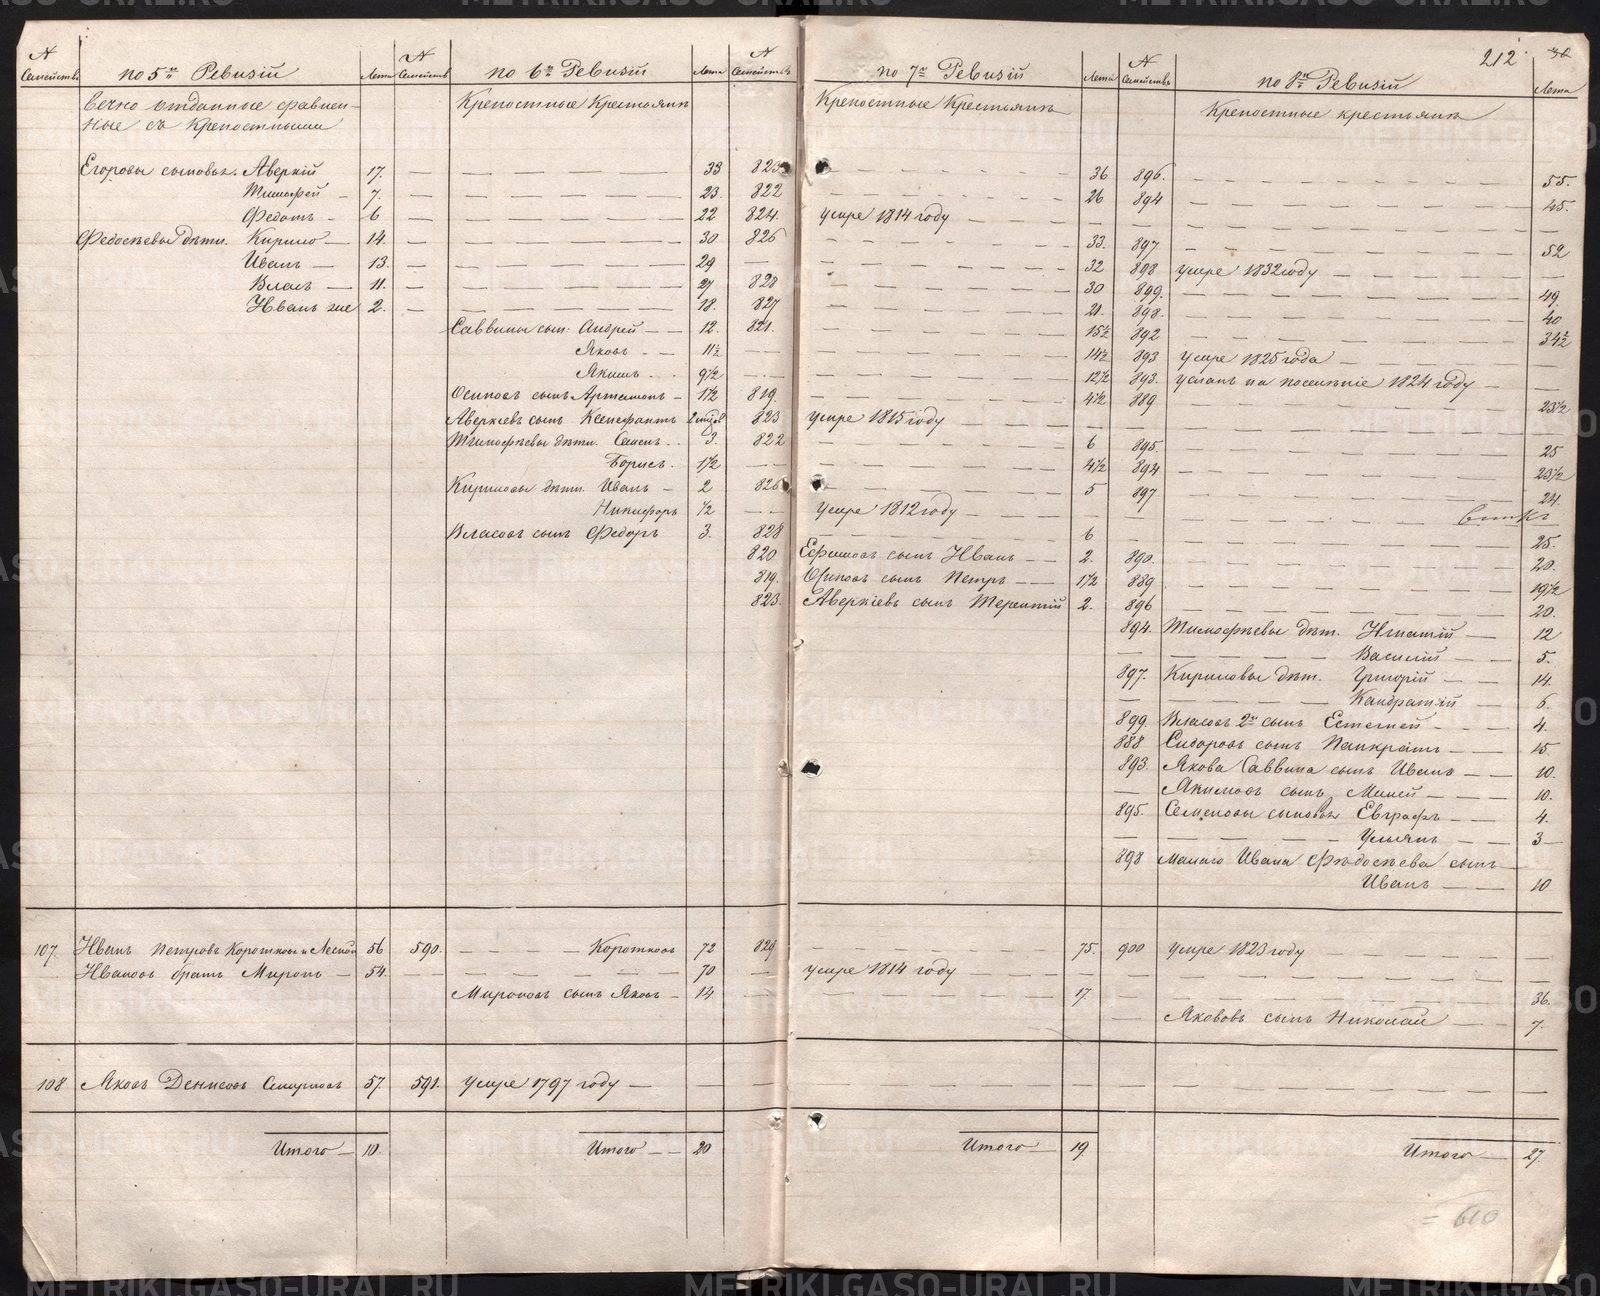 212
№ Семействъ по 5й Ревизіи Лета № Семействъ по 6й Ревизіи Лета № Семействъ по 7й Ревизіи Лета № Семействъ по 8й Ревизіи Лета
вечно отданные сравнен- Крепостные Крестьянѣ Крепостные Крестьянѣ Крепостные крестьянѣ
ные съ Крепостными
Егоровы сыновья. Аверкій 17. — — 33 823 — 36 896. — 55.
Тимофей — 7. — — 23. 822 — 26 894 — 45.
Федотъ — 6 — — 22 824. умре 1814 году — — —
Федосѣевы дѣти. Кирило — 14. — — 30 826 — 33. 897 — 52
Иванъ — 13. — — 29 — — 32 898 умре 1832 году —
Власъ — 11. — — 27 828 — 30 899. — 49.
Иванъ же 2. — — 18. 827 — 21. 898. — 40
Саввины сын: Андрей — 12. 821. — 15½ 892 — 34½
Яковъ — 11½ — — 14½ 893 умре 1825 года —
Якимъ — 9½ — — 12½ 893. усланъ на поселеніе 1824 году —
Осиповъ сынъ Артамонъ — 1½ 819. — 4½ 889 — 23½
Аверкіевъ сынъ Ксенофантъ 823 умре 1815 году — —
Тимофѣевы дѣти. Семенъ — 3. 822 — 6 895. — 25
Борисъ. 1½ — — 4½ 894 — 23½
Кириловы дѣти. Иванъ — 2 826 — 5 897 — 24.
Никифоръ ½ — умре 1812 году — —
Власовъ сынъ Федоръ 3. 828 — 6 — 25.
820 Ефимовъ сынъ Иванъ — 2. 890. — 20.
819. Осиповъ сынъ Петръ — 1½ 889 — 19½
823. Аверкіевъ сынъ Терентій 2. 896 — 20.
894. Тимофѣевы дѣт. Игнатій — 12
— Василій — 5.
897. Кириловы дѣт. Григорій — 14.
— Кандратій — 6.
899. Власовъ 2й сынъ — 4.
888 Сидоровъ сынъ Панкратъ — 15.
893. Якова Саввина сынъ Иванъ — 10.
— Якимовъ сынъ — 10.
895. Семеновы сыновья Евграфъ — 4.
— Ульянъ — 3 —
898 Малаго Ивана Федосѣева сынъ
Иванъ — 10
107. Иванъ Петровъ Коротковъ 56 590. — Коротковъ 72 829 — 75. 900 умре 1823 году —
Ивановъ братъ Миронъ — 54. — 70 — умре 1814 году — —
Мироновъ сынъ Яковъ — 14 — — 17. — 36.
— Яковъ сынъ Николай — 7.
108 Яковъ Денисовъ Смирновъ 57. 591. умре 1797 году — — —
Итого — 10. Итого — 20 Итого — 19. Итого — 27.
= 610
METRIKI.GASO-URAL.RU